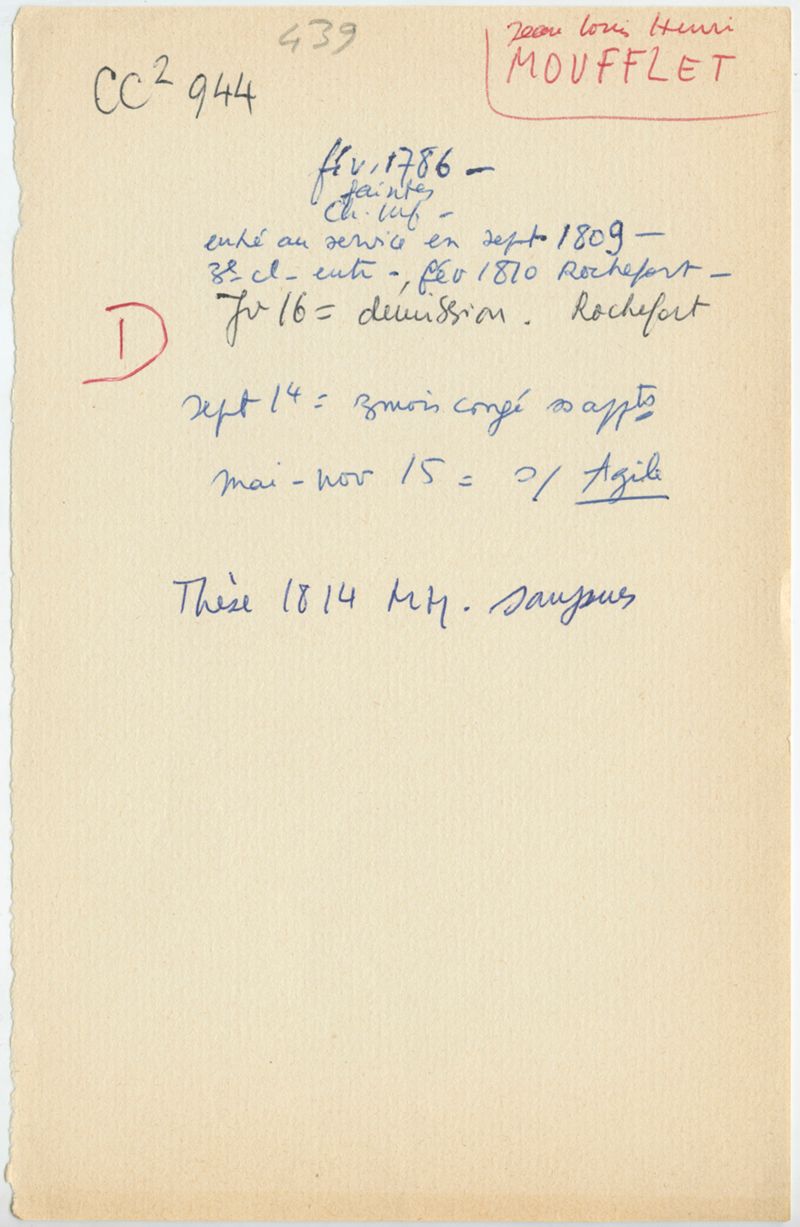 439
Jean Louis Henri
MOUFFLET
CC² 944
fév. 1786 —
Saintes
Ch. Inf —
entré au service en sept 1809 —
3e cl — entr —, fév 1810 Rochefort —
Jv 16 = démission. Rochefort
D
sept 14 = 3 mois congé ss appts
mai - nov 15 = s/ Agile
Thèse 1814 MM. sangsues